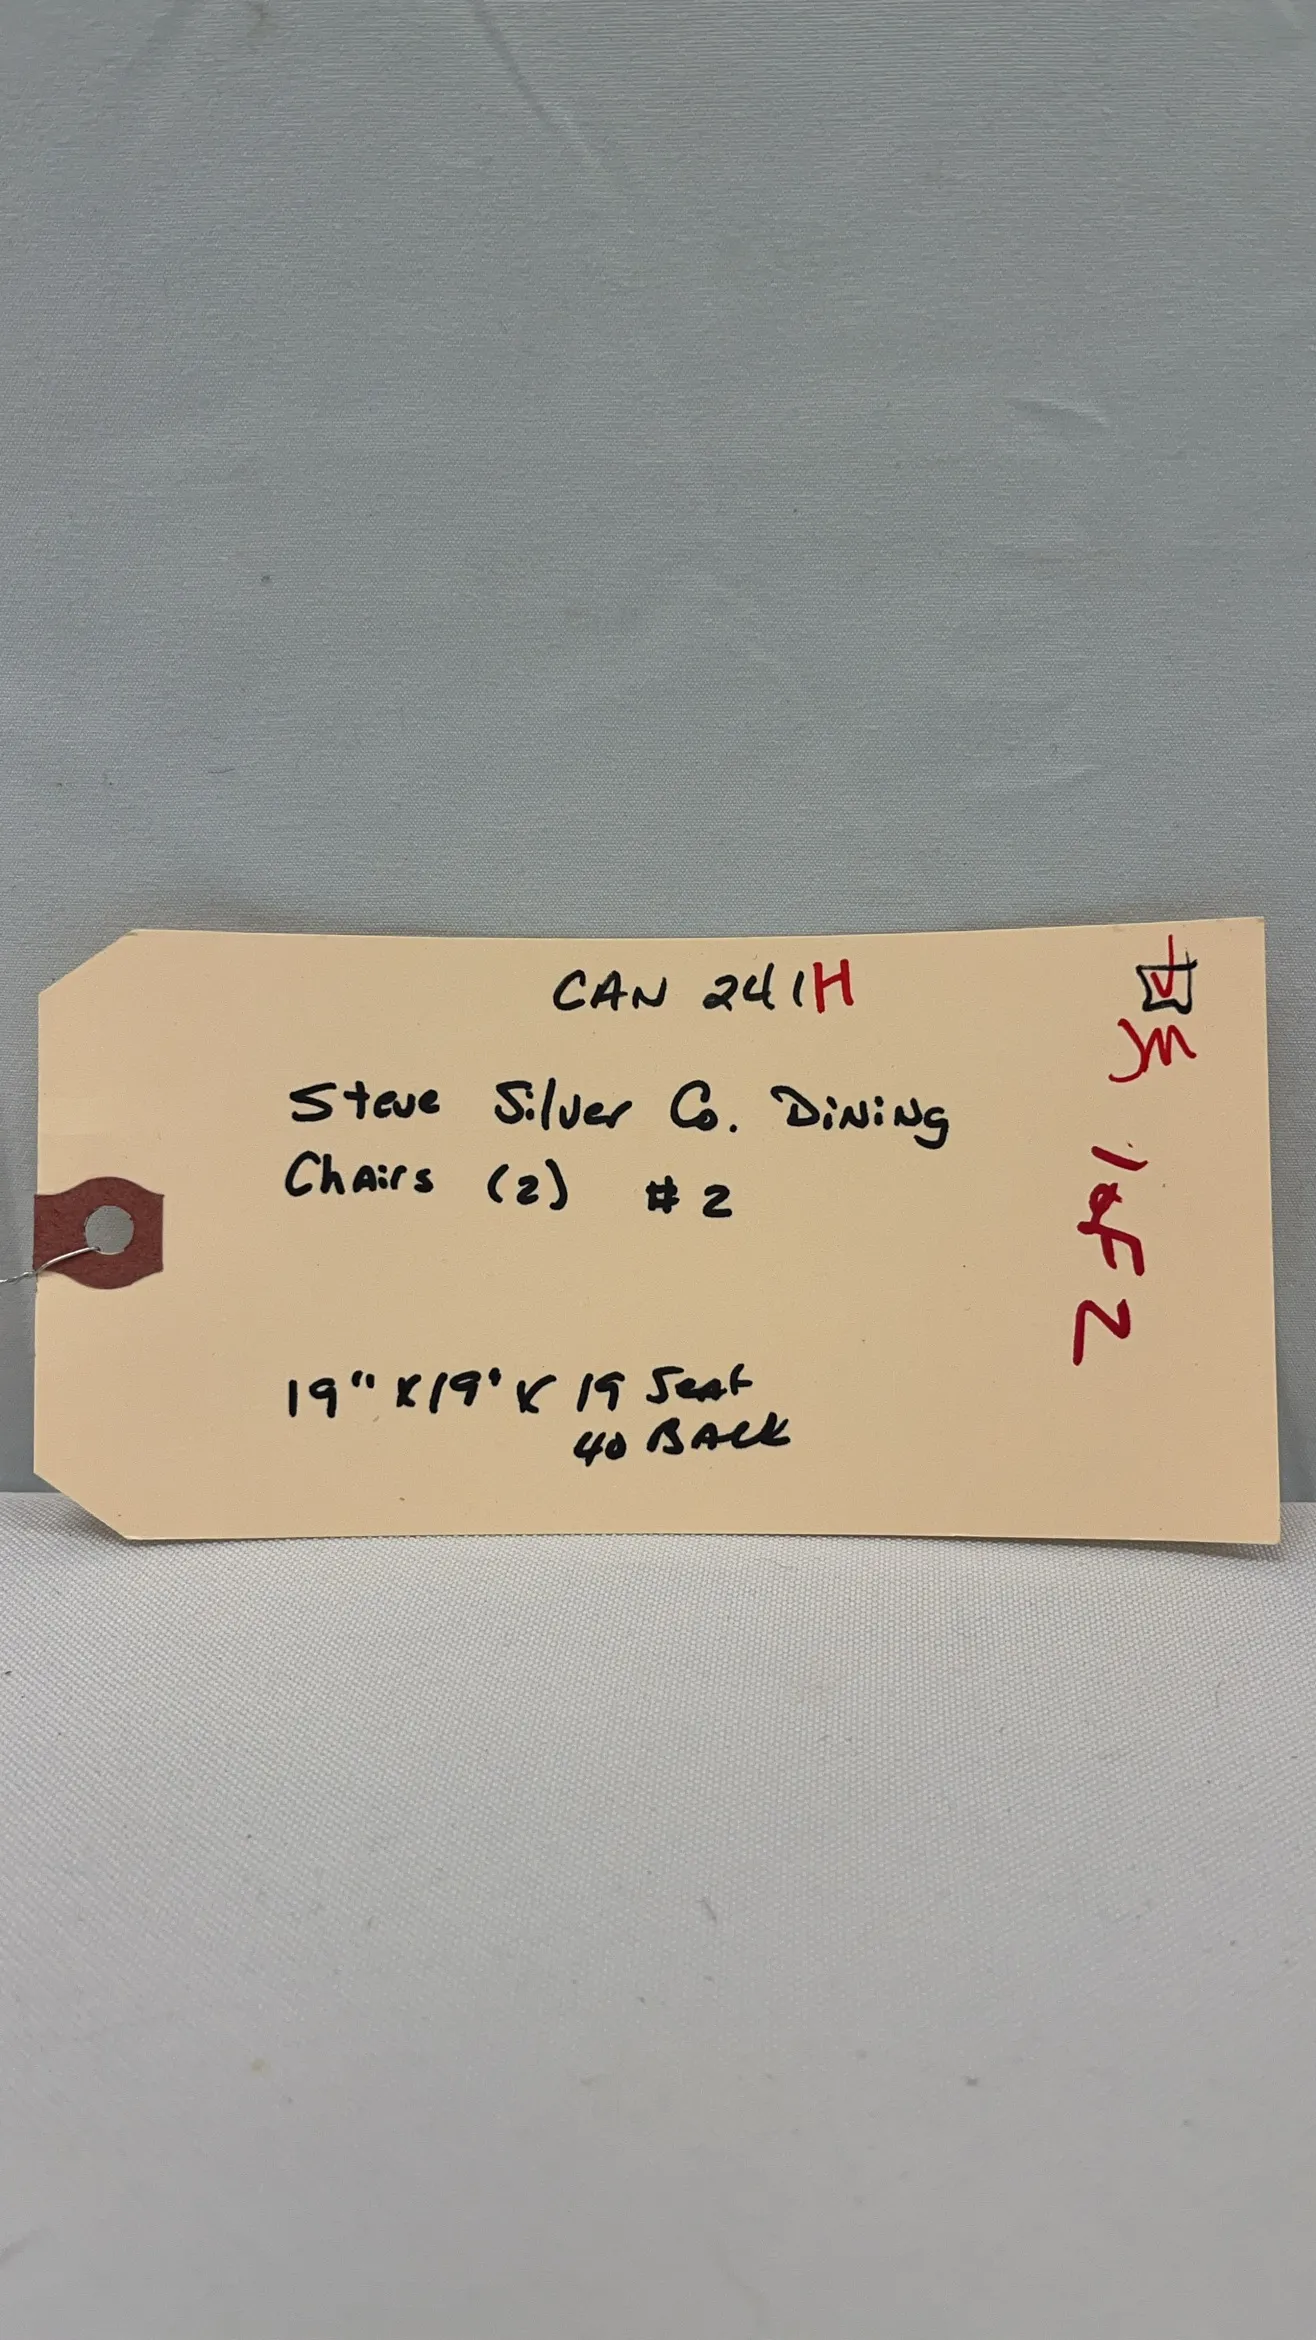 CAN 241H
Steve Silver Co. Dining
Chairs (2) #2
19" x 19' x 19 Seat
40 BACK
JM
1 of 2